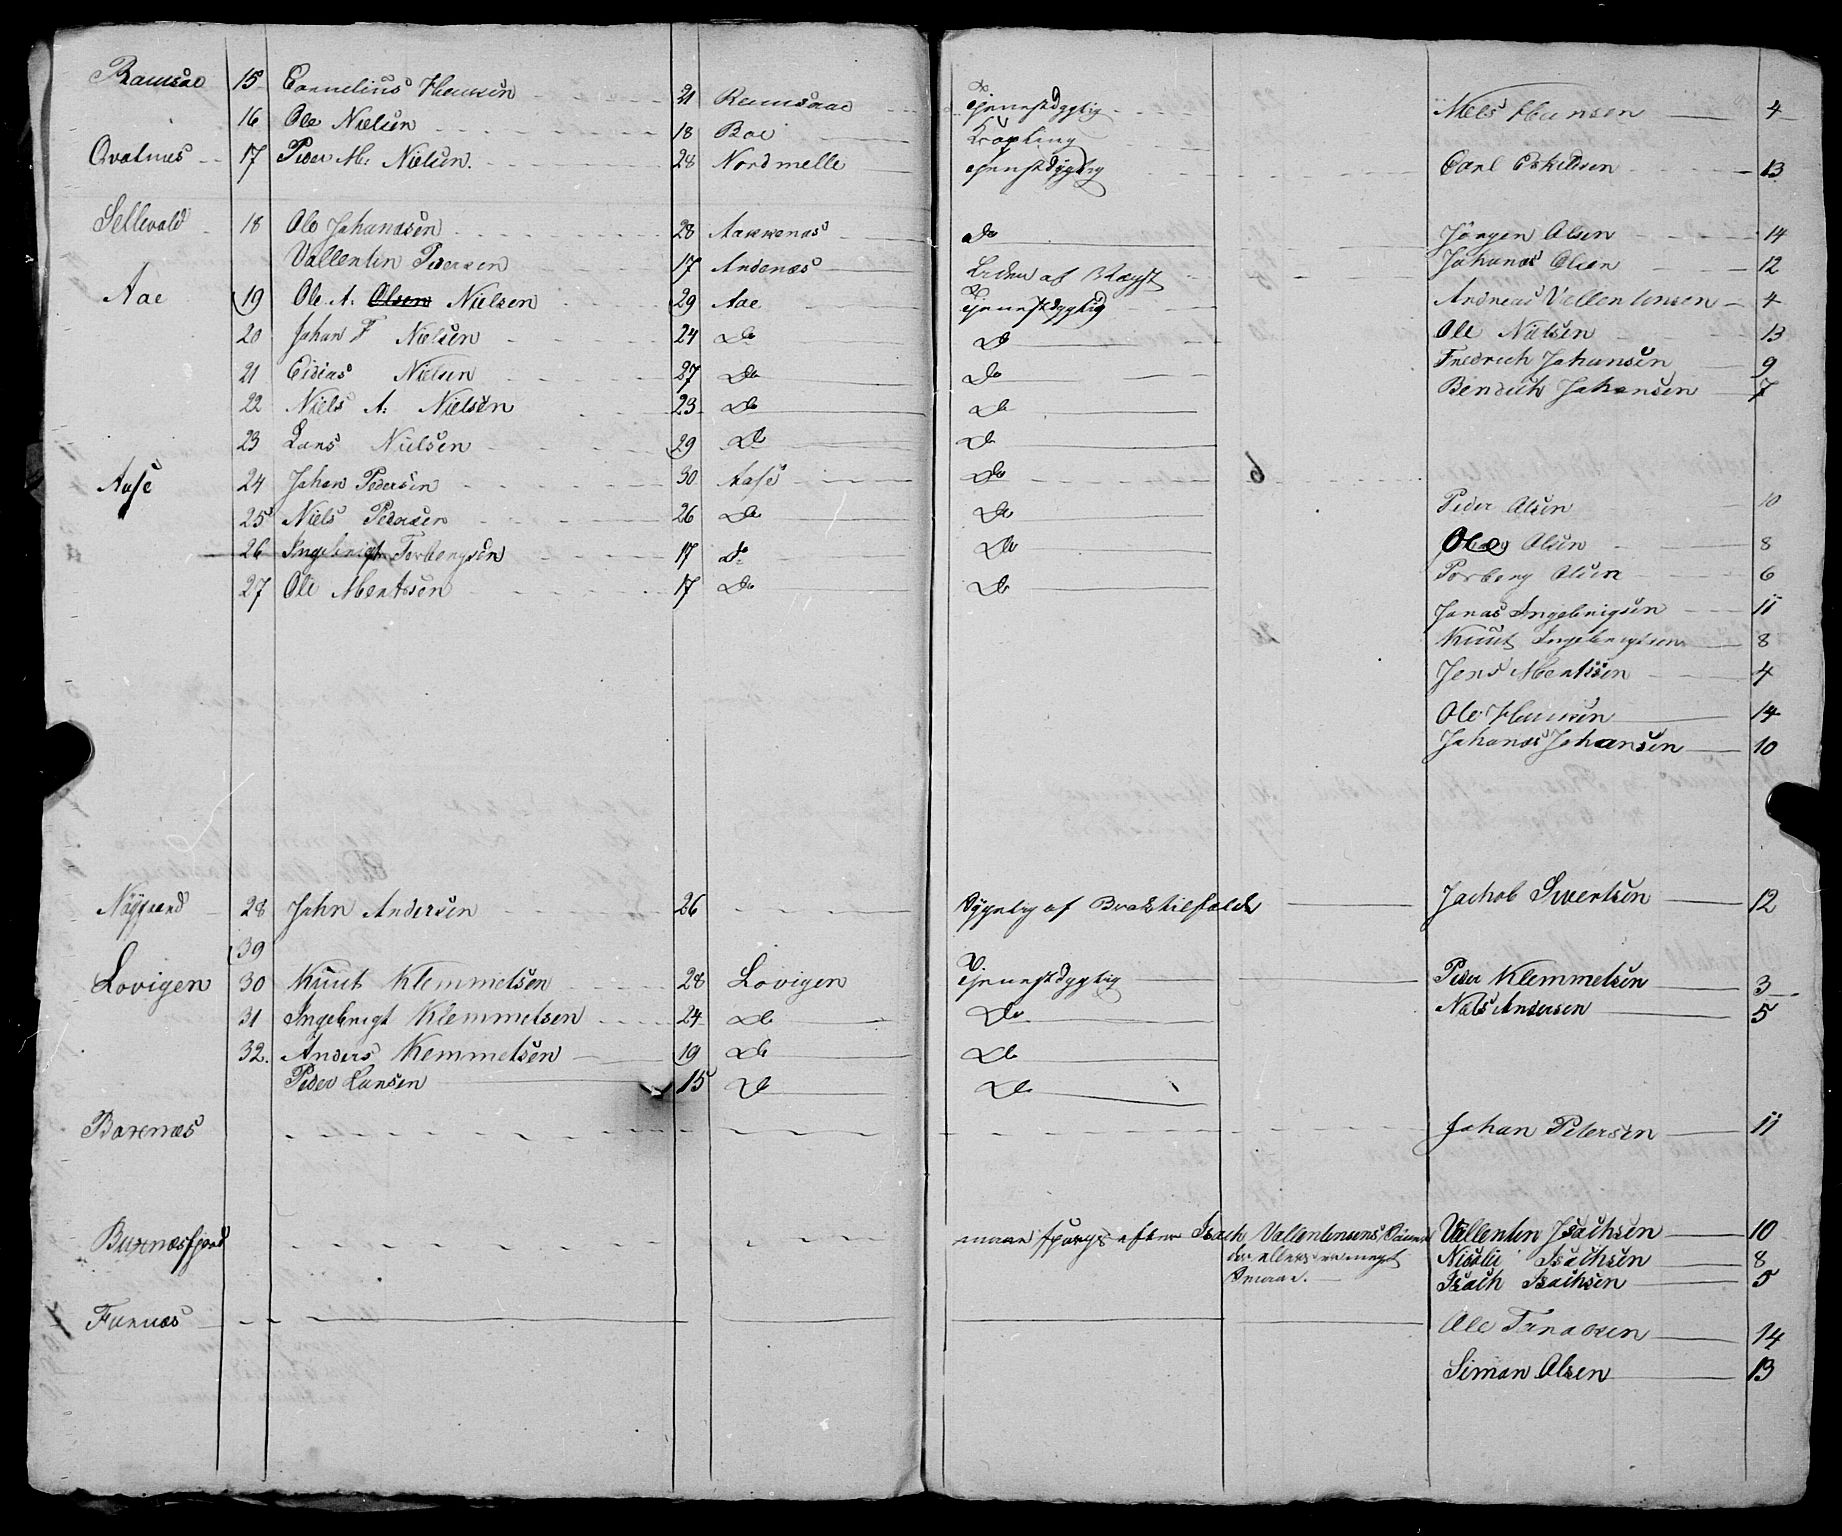 Ramsae 15 Cornelius Hansen 21 Ramsaae Tjenestdygtig Niels Hansen 4
16 Ole Nielsen 18 Boe Krøpling
Qvalnæs 17 Peder M: Nielsen. 28 Nordmelle Tjenestdygtig Carl Eskildsen 13
Sellevold 18 Ole Johansen 28 Do Jørgen Olsen 14
Vallentin Pedersen 17 Andenæs Liden af Væxt Johanes Olsen 12
Aae 19 Ole A. Olsen Nielsen 29 Aae Tjenestdygtig Andreas Vallentinsen 4
20 Johan F Nielsen 24 Do D Ole Nielsen 13
21 Edias Nielsen 27 Do Do Fredrich Johansen 9
22 Niels A: Nielsen 23 Do Do Bendich Johansen 7
23 Lars Nielsen 29 Do Do
Aase 24 Johan Pedersen 30 Aase Do 6
25 Niels Pedersen 26 Do Do Peder Olsen 10
26 Ingebrigt Torbergsen 17 do Do Ole Olsen 8
27 Ole Mentsen 17 Do Do Torberg Olsen 6
Jonas Ingebrigsen 11
Knut Ingebrigtsen 8
Jens Mentsen 4
Ole Hansen 14
Johanes Johansen 10
Nøÿgaard 28 John Andersen 26 Sÿgelig af Jachob Sivertsen 12
39
Lovigen 30 Knut Klemmetsen 28 Lovigen Tjenestdygtig Peder Klemmetsen 3
31 Ingebrigt Klemmetsen 24 Do Do Niels Andersen 5
32. Anders Klemmetsen 19 Do Do
Peder Larsen 15 Do Do
Boxenæs Johan Petersen 11
Buxnæsfjord maae spørges efter Isach Vallentinsens Vallentin Isachsen 10
Nicolai Isachsen 8
Isach Isachsen 5
Furnæs Ole 14
Simon Olsen 13